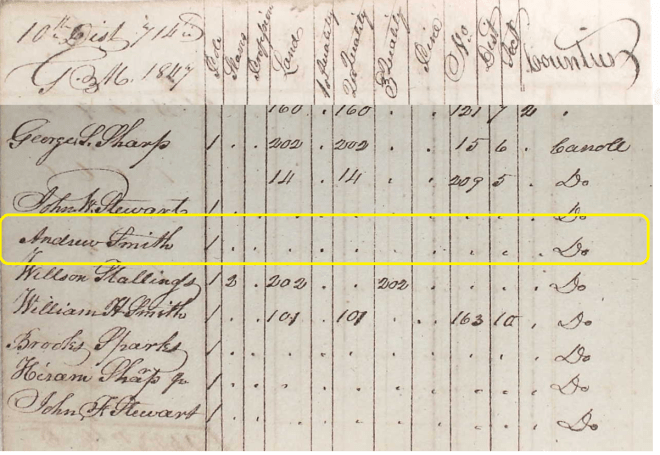 10th Dist 714th Pole Slaves Profession Land 1st Quality 2n Quality 3 Quality Pine No. Dist Sect Counties
G. M. 1847
160 . 160 . . 121 7 2 .
George L. Sharp 1 . . 202 . 202 . . 15 6 . Carroll
14 . 14 . . 209 5 . Do
John W. Stewart 1 . Do
Andrew Smith 1 . . . . . . . . . . Do
Willson Stallings 1 2 . 202 . . 202 . . . . Do
William H Smith 1 . . 101 . 101 . . 163 10 . Do
Brooks Sparks 1 . . . . . . . . . . Do
Hiram Sharp Jr 1 . . . . . . . . . . Do
John F. Stewart 1 . . . . . . . . . . Do